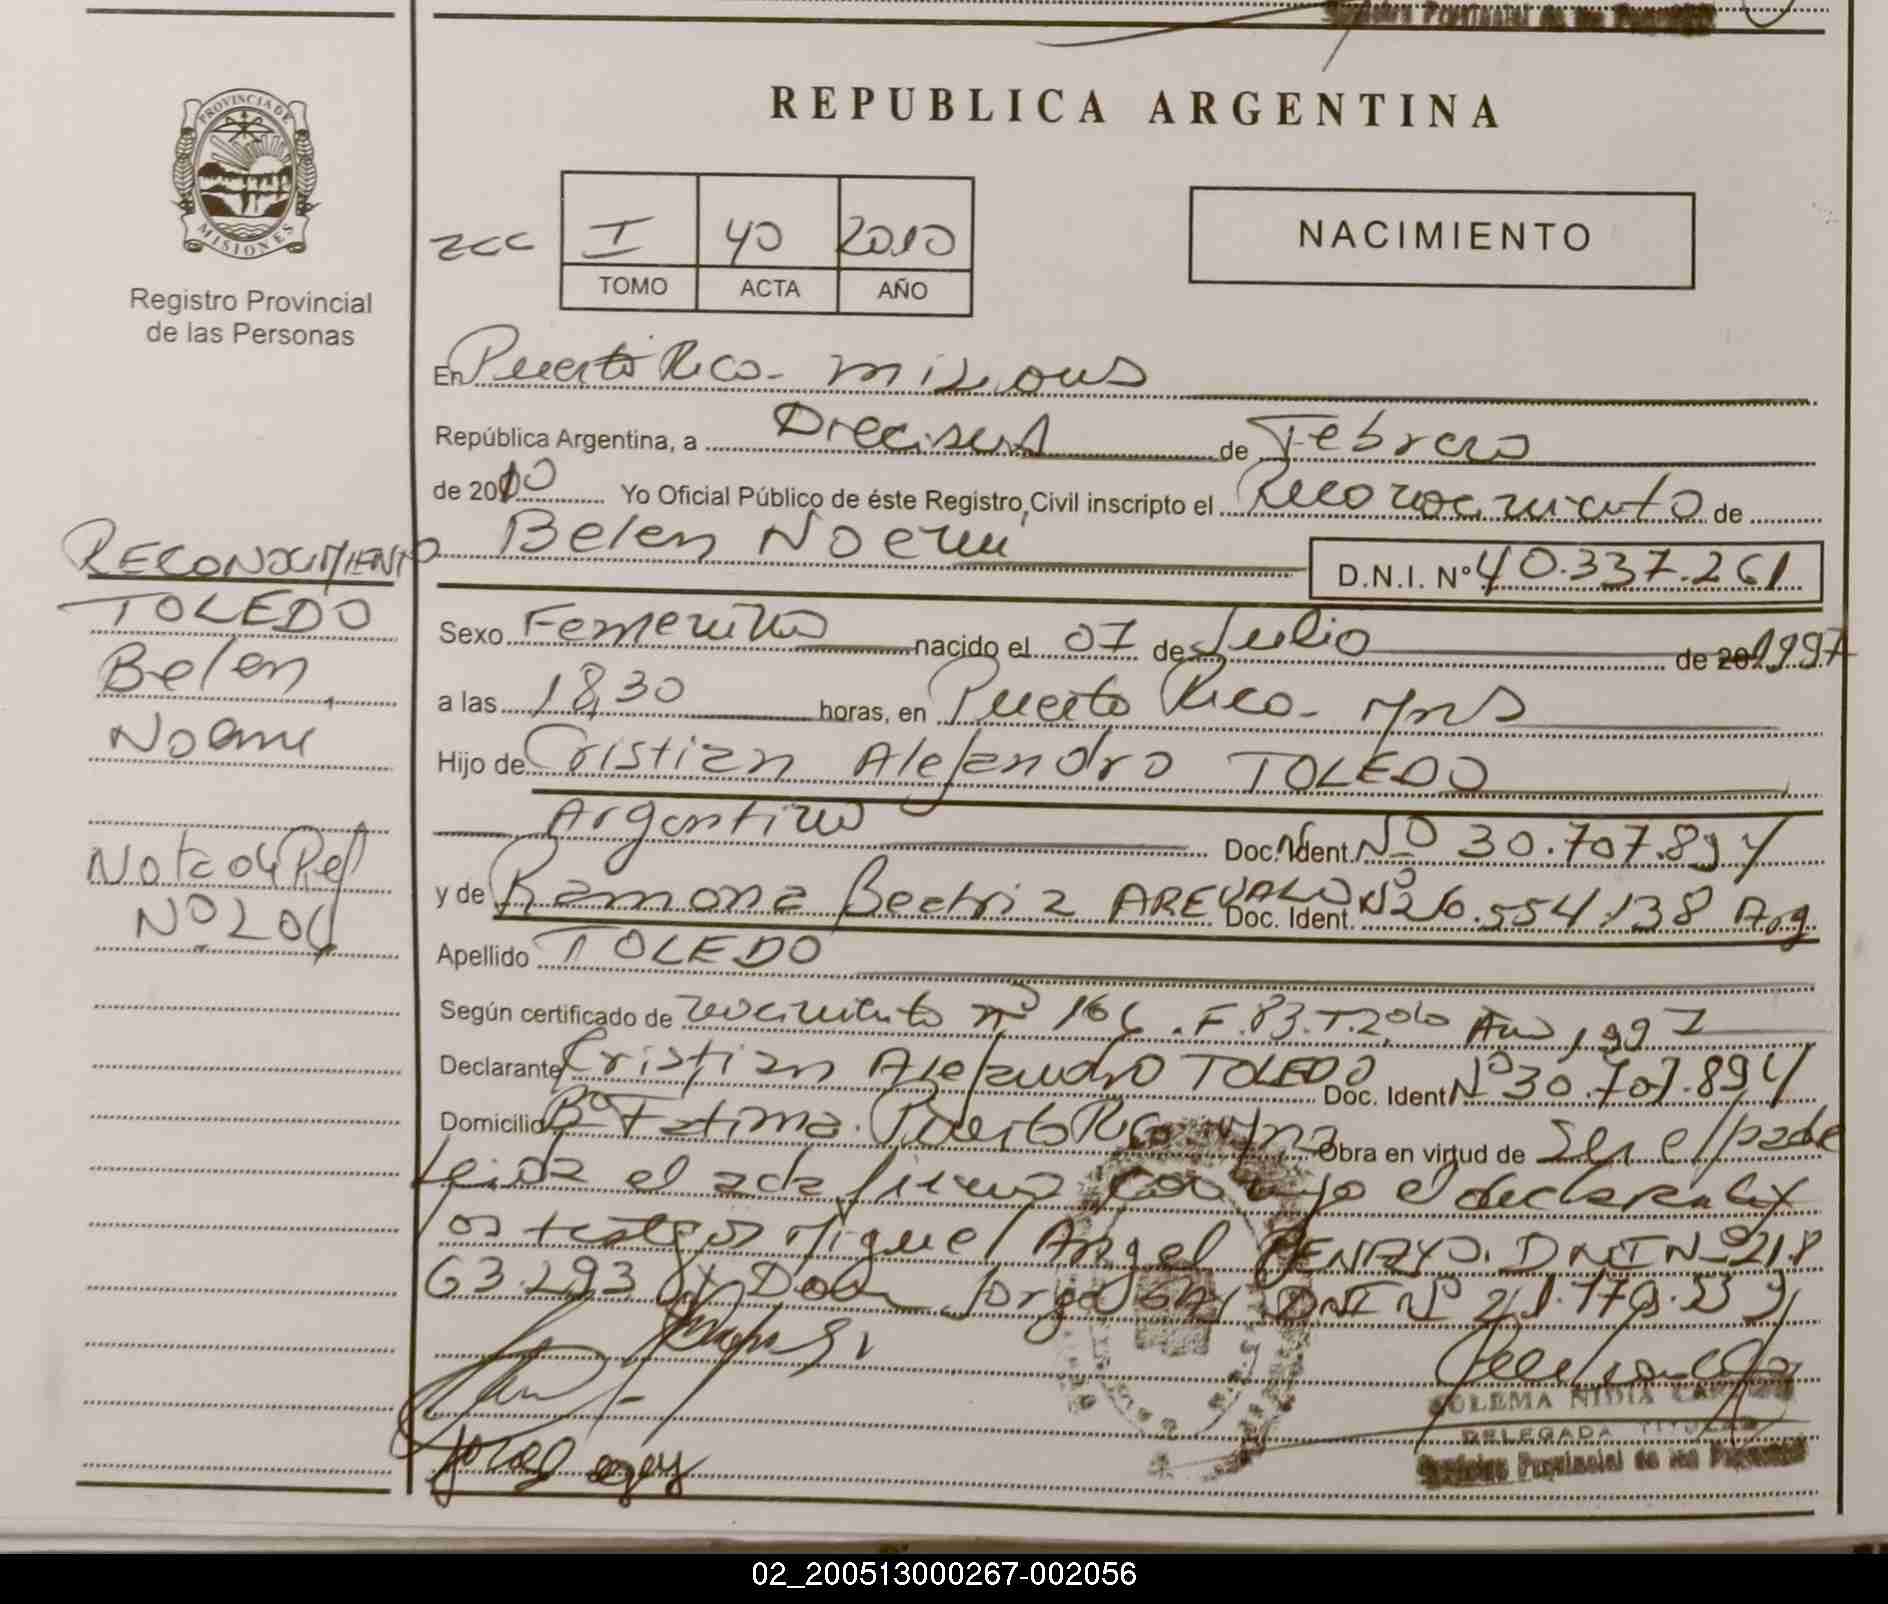 PROVINCIA DE
MISIONES
Registro Provincial
de las Personas
REPUBLICA ARGENTINA
I 40 2010
TOMO ACTA AÑO
NACIMIENTO
En Puerto Rico - Misiones
República Argentina, a Dieciseis de Febrero
de 2010 Yo Oficial Público de éste Registro Civil inscripto el Reconocimiento de
Belen Noemi D.N.I. Nº 40.337.261
Sexo Femenino nacido el 07 de Julio de 1997
a las 18,30 horas, en Puerto Rico - Mns
Hijo de Cristian Alejandro TOLEDO
Argentino Doc. Ident. Nº 30.707.894
y de Ramona Beatriz AREVALO Doc. Ident. Nº 26.554.138 Arg
Apellido TOLEDO
Según certificado de nacimiento nº 166 . F. 83. T. 2010 Año 1997
Declarante Cristian Alejandro TOLEDO Doc. Ident Nº 30.707.894
Domicilio Bº Fatima. Puerto Rico Mns Obra en virtud de Ser el padre
Leida el acta firma conmigo el declarante y
los testigos Miguel Angel BENAYO. DNI Nº 21.8
63.293 y Don Jorge DNI Nº
RECONOCIMIENTO
TOLEDO
Belen
Noemi
Nota de Ref
Nº 204
NIDIA
DELEGADA TITULAR
Registro Provincial de las Personas
02_200513000267-002056